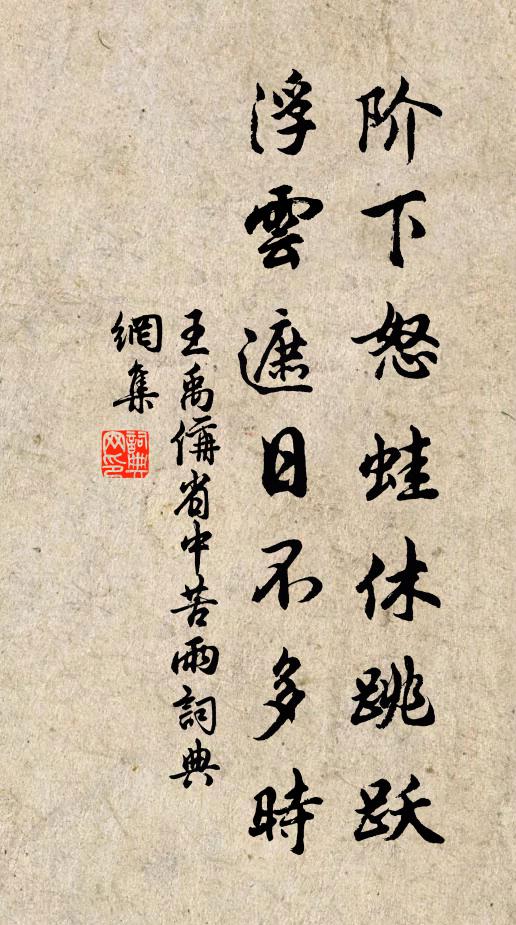 阶下怒蛙休跳跃
浮雲遮日不多時
王禹偁省中苦雨詞典
網集
詞典網印